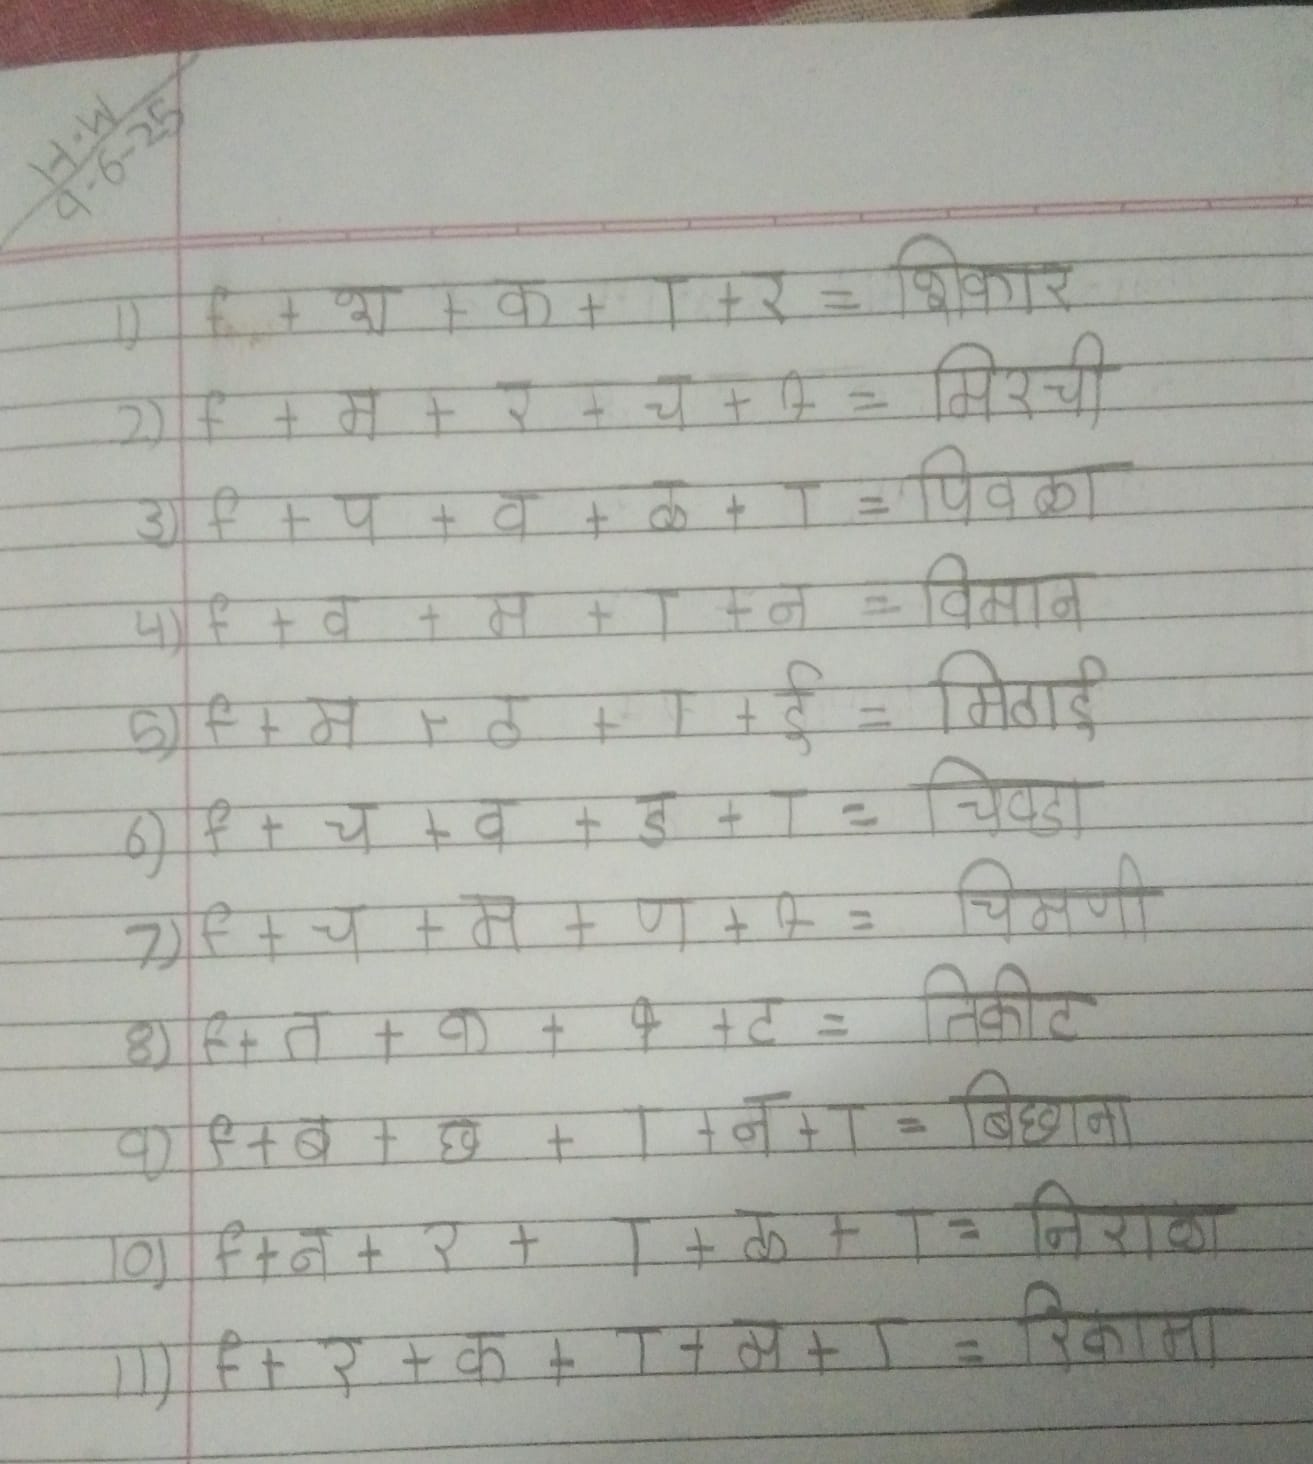 H.W
9-6-25
1) ि + श + क + ा + र = शिकार
2) ि + म + र + च + ी = मिरची
3) ि + प + व + ळ + ा = पिवळा
4) ि + व + म + ा + न = विमान
5) ि + म + ठ + ा + ई = मिठाई
6) ि + च + व + ड + ा = चिवडा
7) ि + च + म + ण + ी = चिमणी
8) ि + त + क + ी + ट = तिकीट
9) ि + ब + छ + ा + न + ा = बिछाना
10) ि + न + र + ा + ळ + ा = निराळा
11) ि + र + क + ा + म + ा = रिकामा